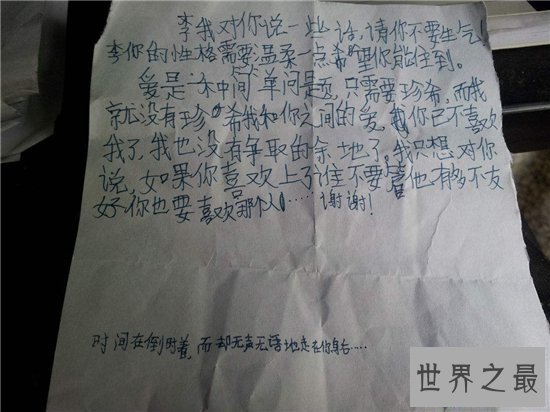 李我对你说一些话,请你不要生气
李你的性格需要温柔一点希望你能住到。
爱是一末中简单问是页,只需要珍希,而我
就没有珍希我和你之间的爱,你已不喜欢
我了,我也没有争取的余地了,我只想对你
说,如果你喜欢上了谁不要管他有多不友
好你也要喜欢那个人……谢谢!
时间在倒时着,而却无声无语地走在你身后……
世界之最